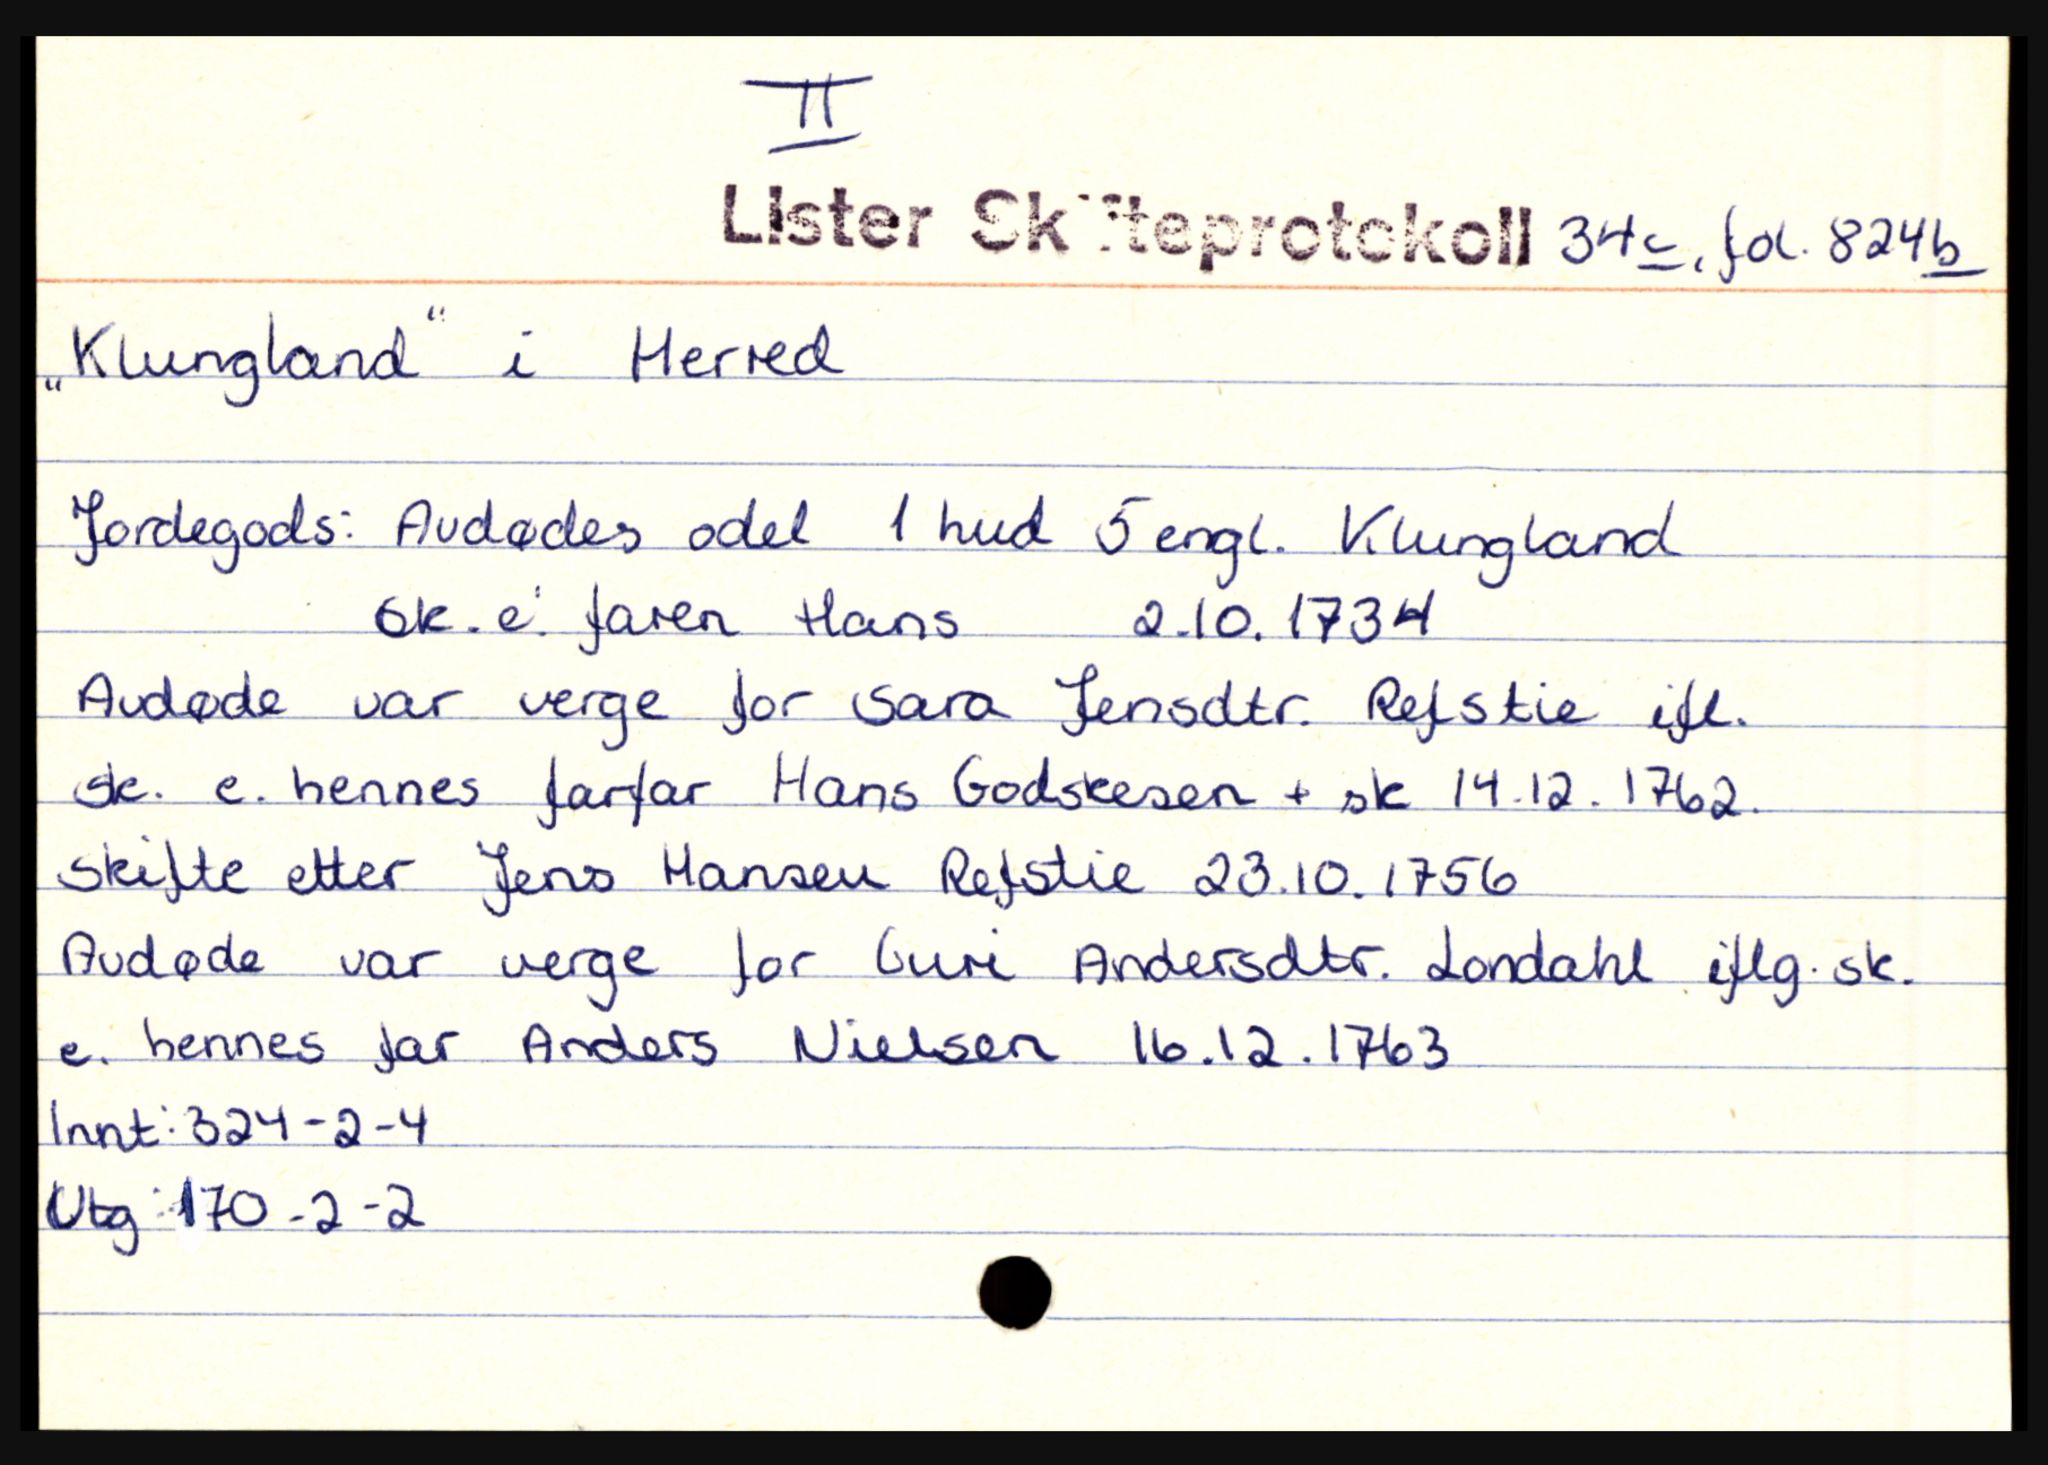 II
Lister Skifteprotokoll 34c, fol. 824b
„Klungland“ i Herred
Jordegods: Avdødes odel 1 hud 5 engl. Klungland
Sk. e. faren Hans 2.10.1734
Avdøde var verge for Sara Jensdtr. Refstie ifl.
sk. e. hennes farfar Hans Godskesen + sk 14.12.1762.
Skifte etter Jens Hansen Refstie 23.10.1756
Avdøde var verge for Guri Andersdtr. Londahl iflg. sk.
e. hennes far Anders Nielsen 16.12.1763
Innt: 324-2-4
Utg: 170-2-2